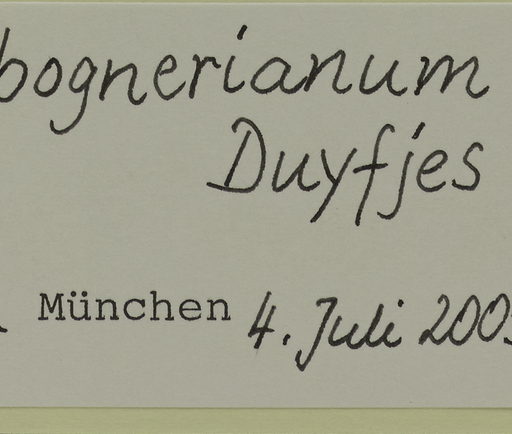 bognerianum
Duyfjes
München 4. Juli